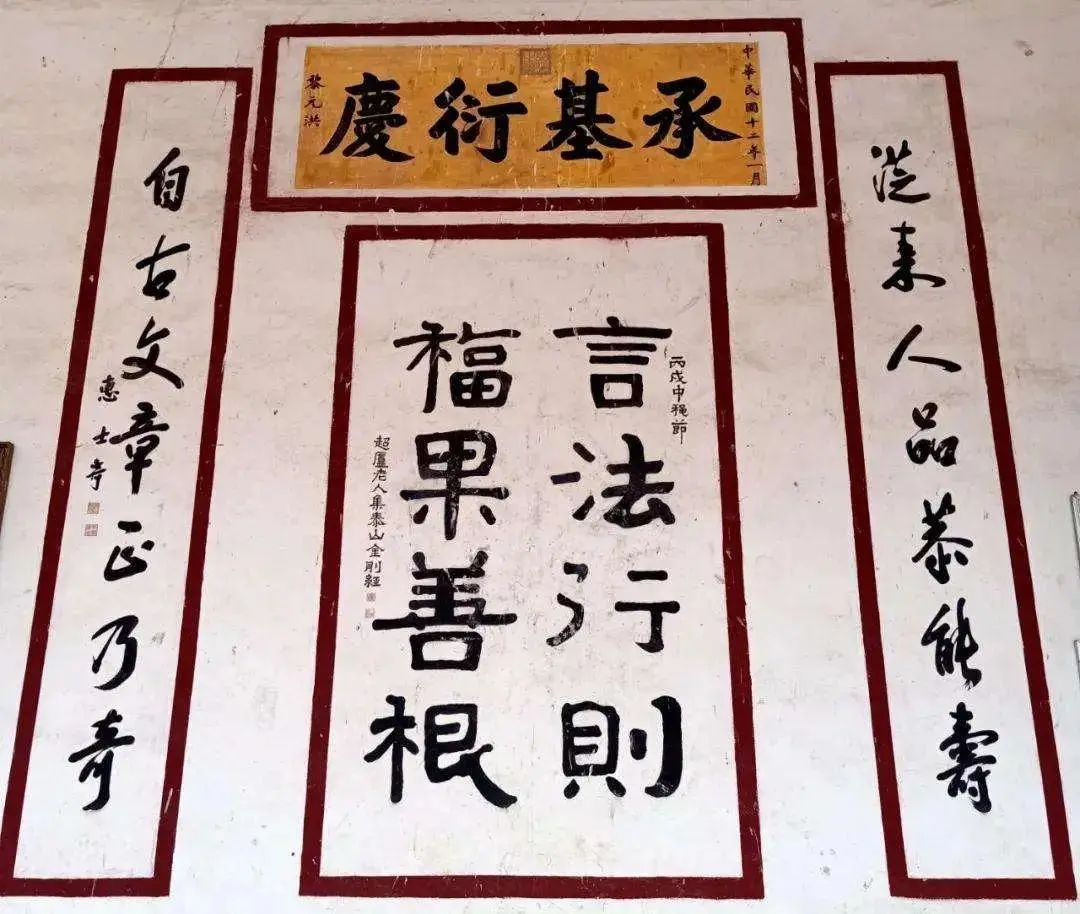 中華民國十二年一月
承基衍慶
黎元洪
從来人品恭能壽
丙戌中秌節
言法行則
福果善根
超廬老人集泰山金剛經
自古文章正乃奇
惠士奇